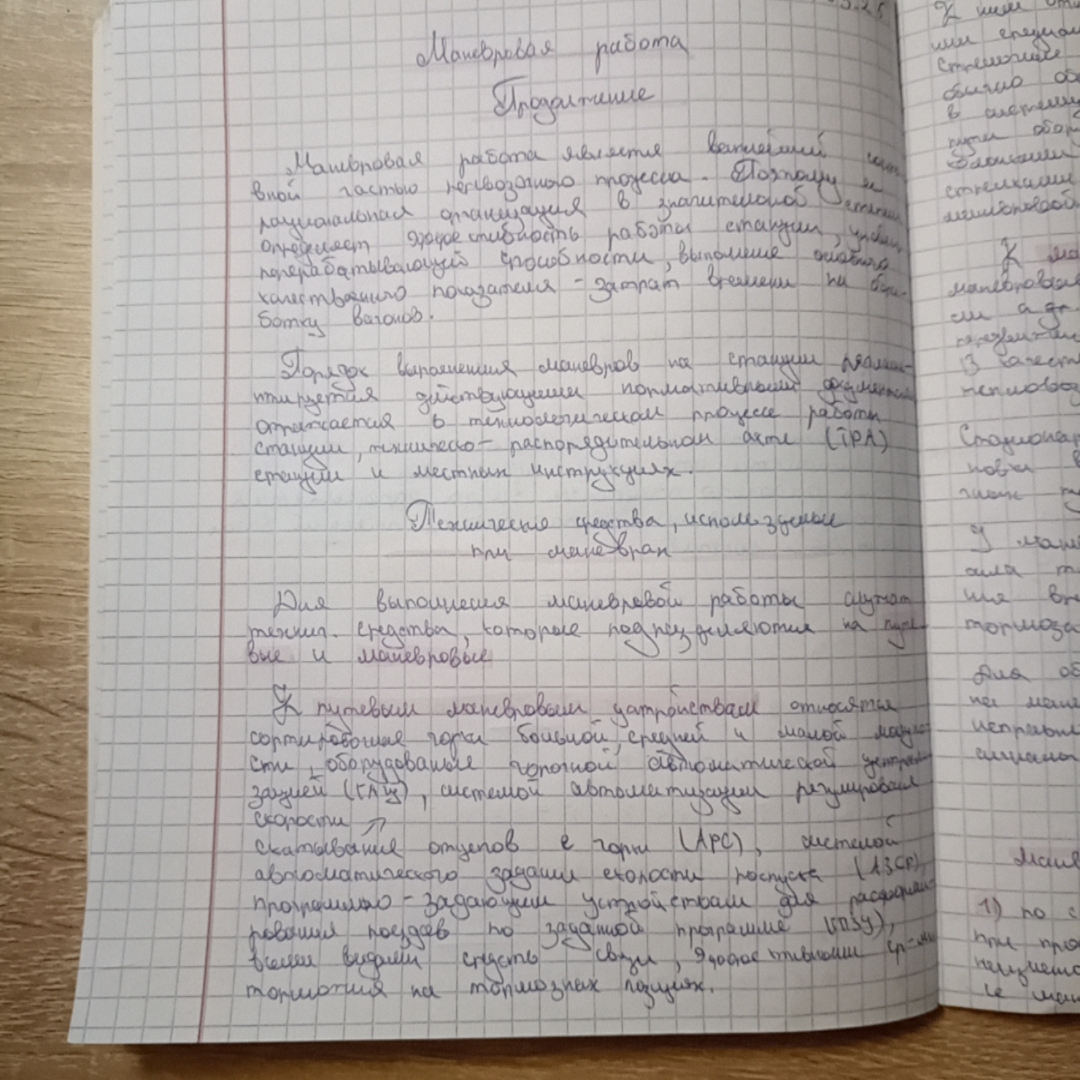 Маневровая работа
Продолжение
Маневровая работа является важнейшей
вной частью перевозочного процесса. Поэтому и
рациональная организация в значительной степени
определяет эффективность работы станции,
перерабатывающей способности, выполнение
качественного показателя - затрат времени на обра-
ботку вагонов.
Порядок выполнения маневров на станции реглам-
нтируется действующими нормативными документами
отражается в технологическом процессе работы
станции, техническо - распорядительном акте (ТРА)
станции и местных инструкциях.
Технические средства, используемые
при маневрах
Для выполнения маневровой работы служат
технич. средства, которые подразделяются на путе-
вые и маневровые
К путевым маневровым устройствам относятся
сортировочные горки большой, средней и малой мощно
сти, оборудованые горочной автоматической централи
зацией (ГАЦ), системой автоматизации регулирования
скорости
скатывание отцепов с горки (АРС), системой
автоматического задания скорости роспуска (АЗСР),
программно - задающим устройствам для расформи
рования поездов по заданной программе (ГПЗУ),
всеми видами средств связи, эффективными ср-ми
торможения на тормозных позициях.
К ним
или
стрелочные
обычно
в
пути
стрелками
К
маневровая
В качест
тепловоз
Стационар
У
сила
тормоза
Для об
исправн
1) по с
при про